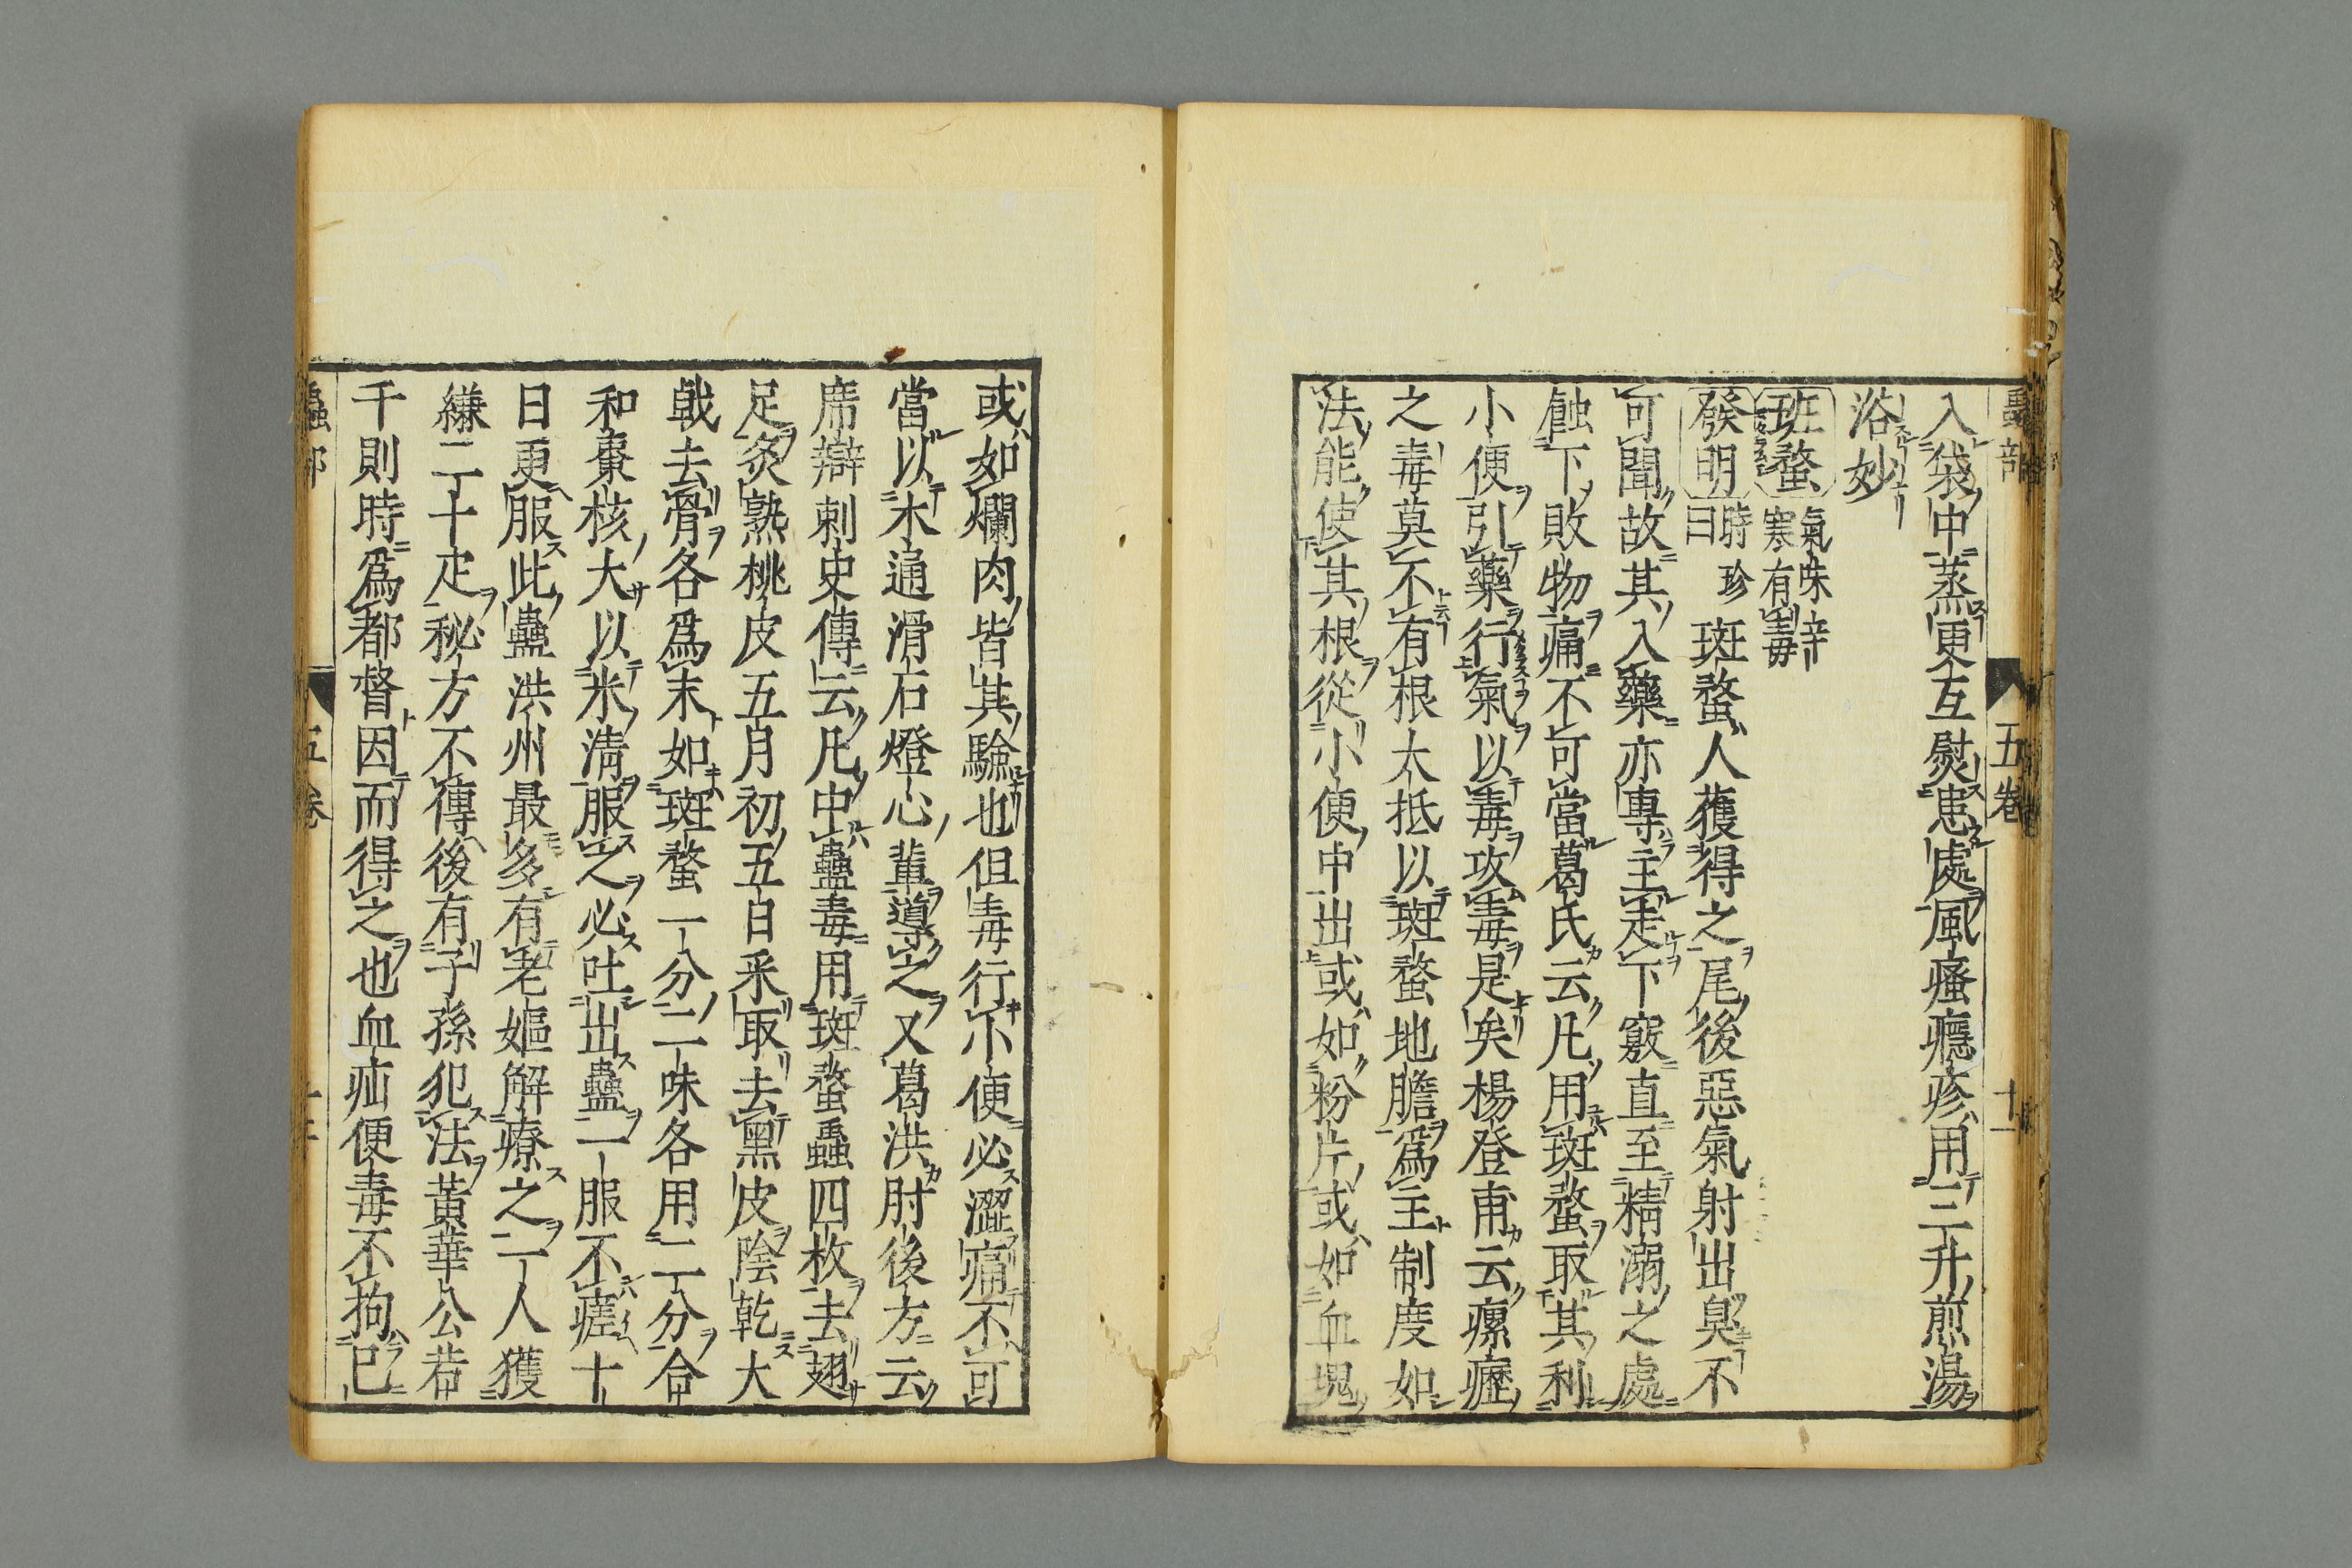 蟲部 五卷 十一
入袋中蒸更互熨患處風瘙癮疹用三升煎湯
浴妙
斑蝥 氣味辛寒有毒
發明 時珍曰 斑蝥人獲得之尾後惡氣射出臭不
可聞故其入藥亦專主走下竅直至精溺之處
蝕下敗物痛不可當葛氏云凡用斑蝥取其利
小便引藥行氣以毒攻毒是矣楊登甫云瘰癧
之毒莫不有根大抵以斑蝥地膽爲主制度如
法能使其根從小便中出或如粉片或如血塊
或如爛肉皆其驗也但毒行小便必澀痛不可
當以木通滑石燈心輩導之又葛洪肘後方云
席辯刺史傳云凡中蠱毒用斑蝥蟲四枚去翅
足炙熟桃皮五月初五日釆取去黑皮陰乾大
戟去骨各爲末如斑蝥一分二味各用二分合
和棗核大以米淸服之必吐出蠱一服不瘥十
日更服此蠱洪州最多有老嫗解療之一人獲
縑二十疋秘方不傳後有子孫犯法黃華公若
千則時爲都督因而得之也血疝便毒不拘已
蟲部 五卷